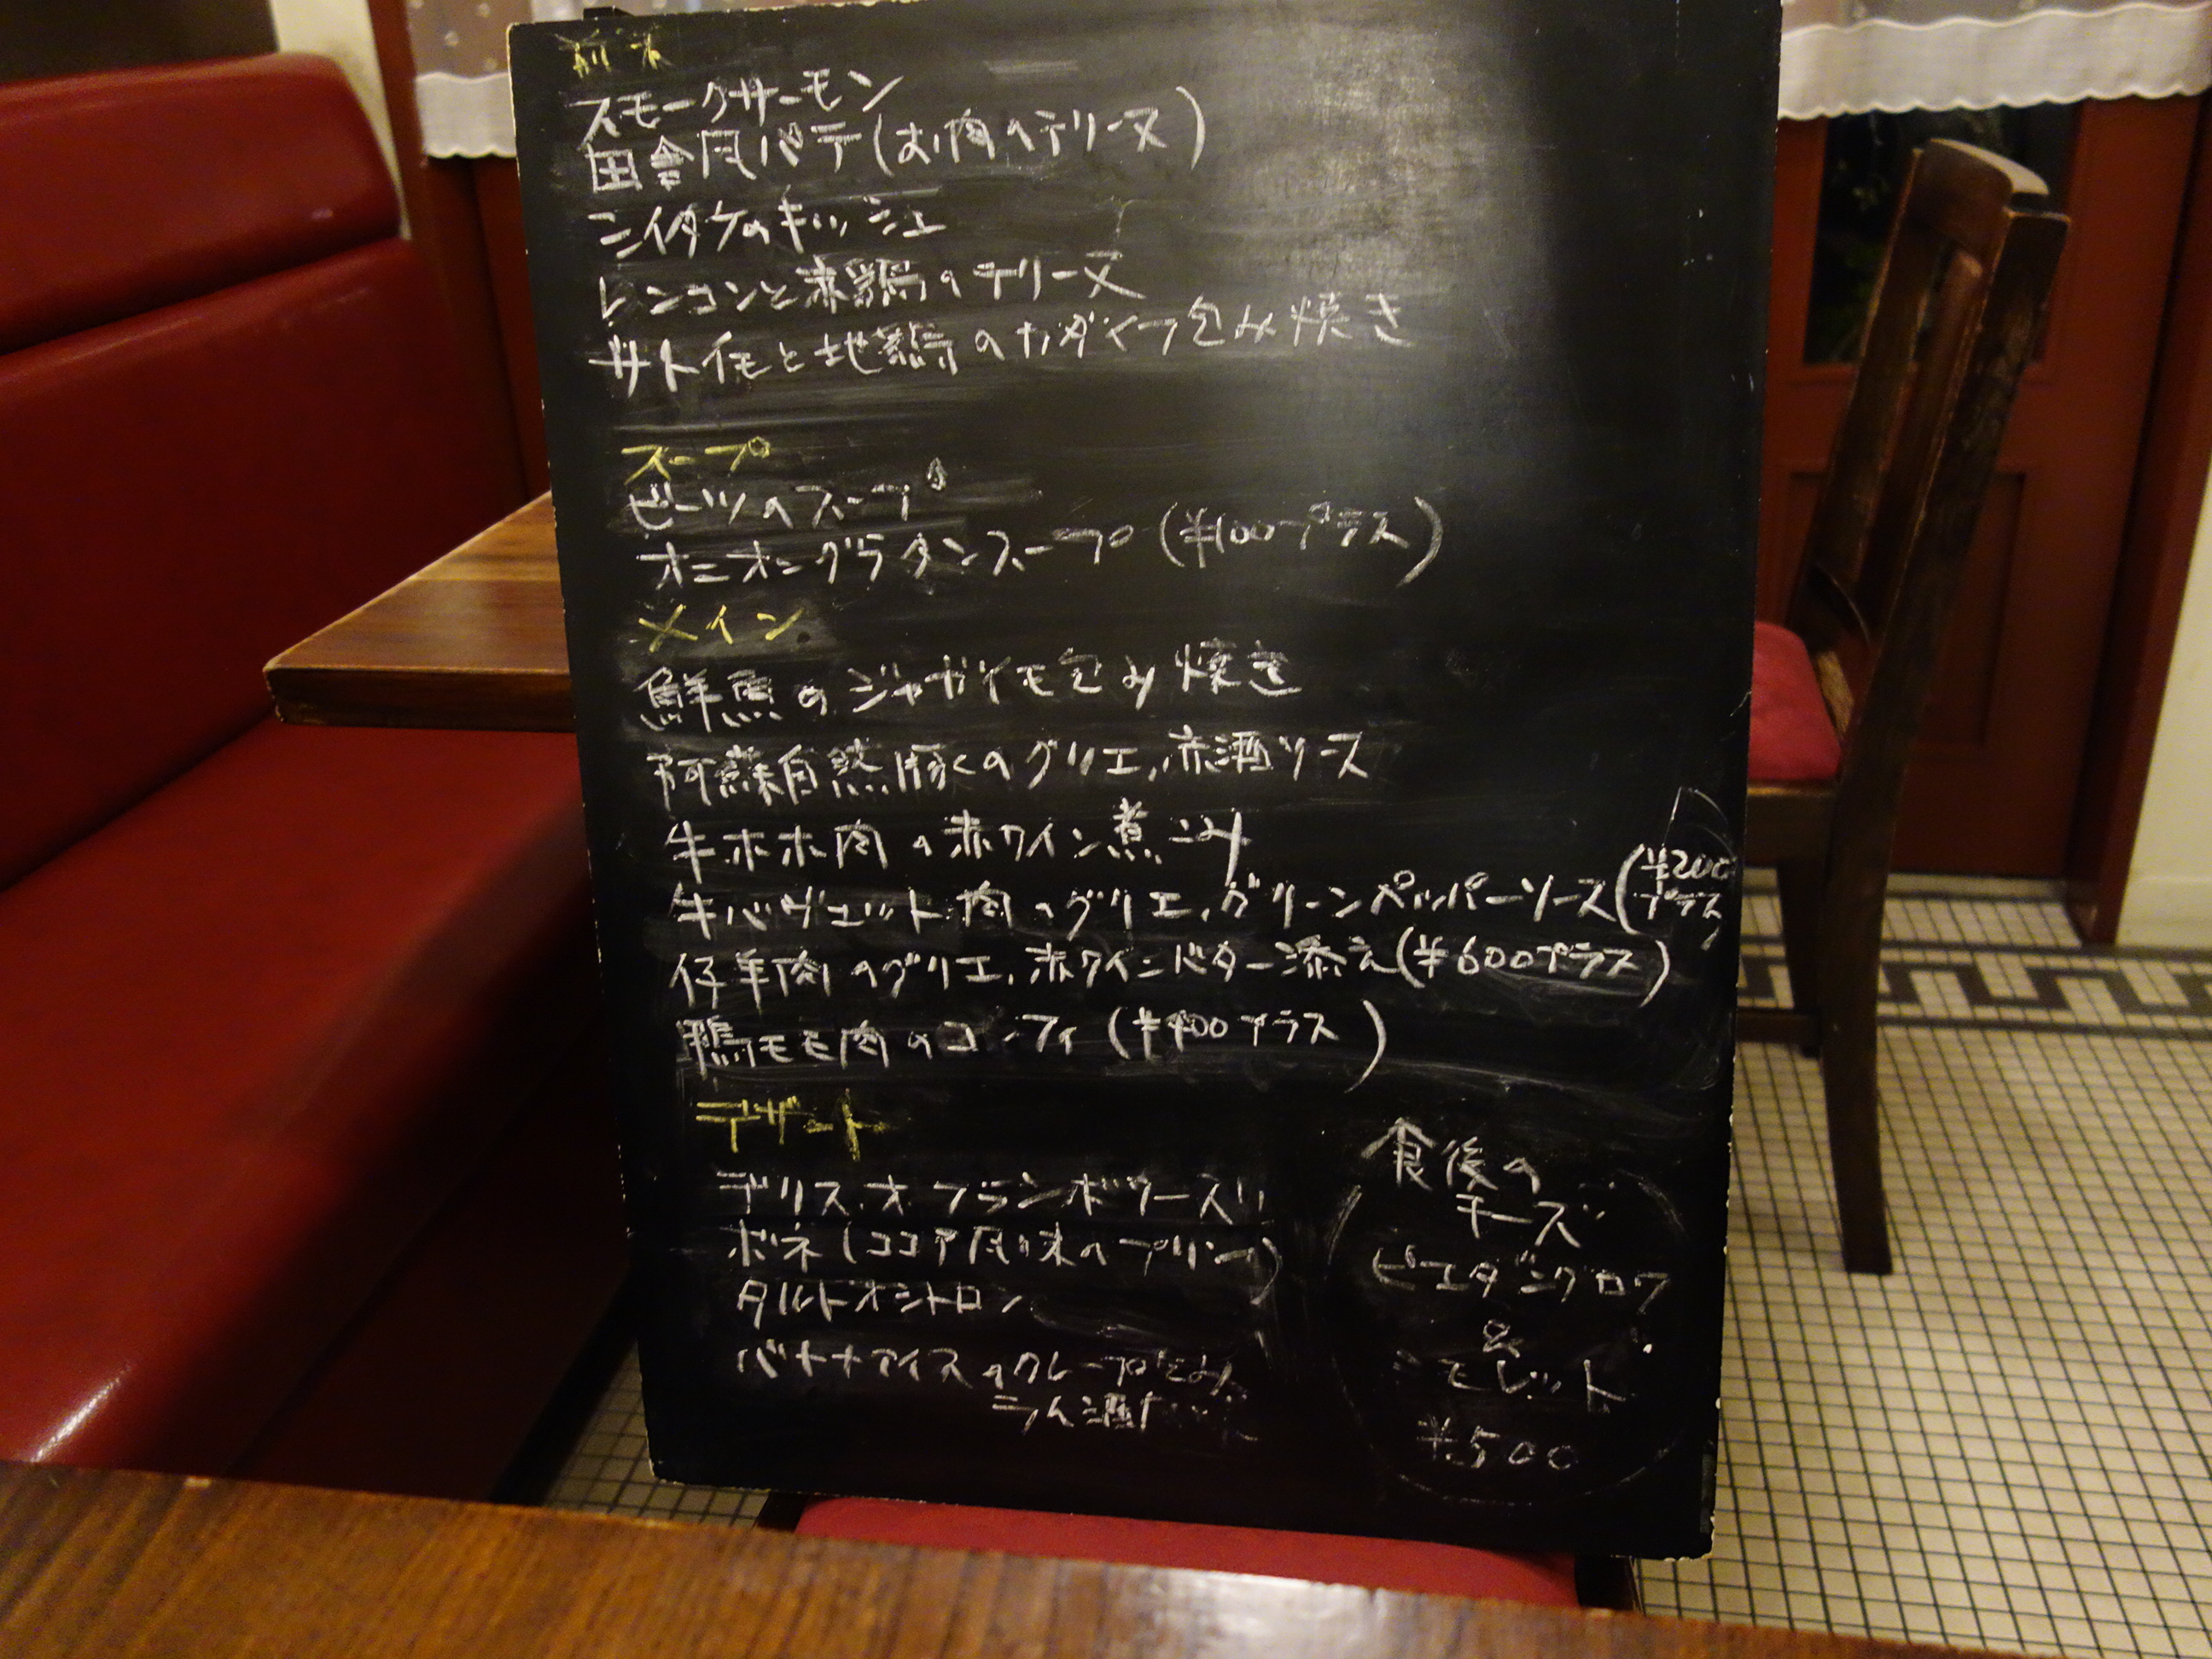 前菜
スモークサーモン
田舎風パテ(お肉のテリーヌ)
シイタケのキッシュ
レンコンと赤鶏のテリーヌ
サトイモと地鶏のカダイフ包み焼き
スープ
ビーツのスープ
オニオングラタンスープ(¥100プラス)
メイン
鮮魚のジャガイモ包み焼き
阿蘇自然豚くのグリエ,赤酒ソース
牛ホホ肉の赤ワイン煮こみ
牛バヴェット肉のグリエ,グリーンペッパーソース(¥200プラス)
仔羊肉のグリエ,赤ワインバター添え(¥600プラス)
鴨モモ肉のコンフィ(¥400プラス)
デザート
デリス・オ・フランボワーズ
ボネ(ココア風味のプリン)
タルトオシトロン
バナナアイスのクレープ包み
ラム酒
食後の
チーズ
ピエダングロワ
&
ミモレット
¥500